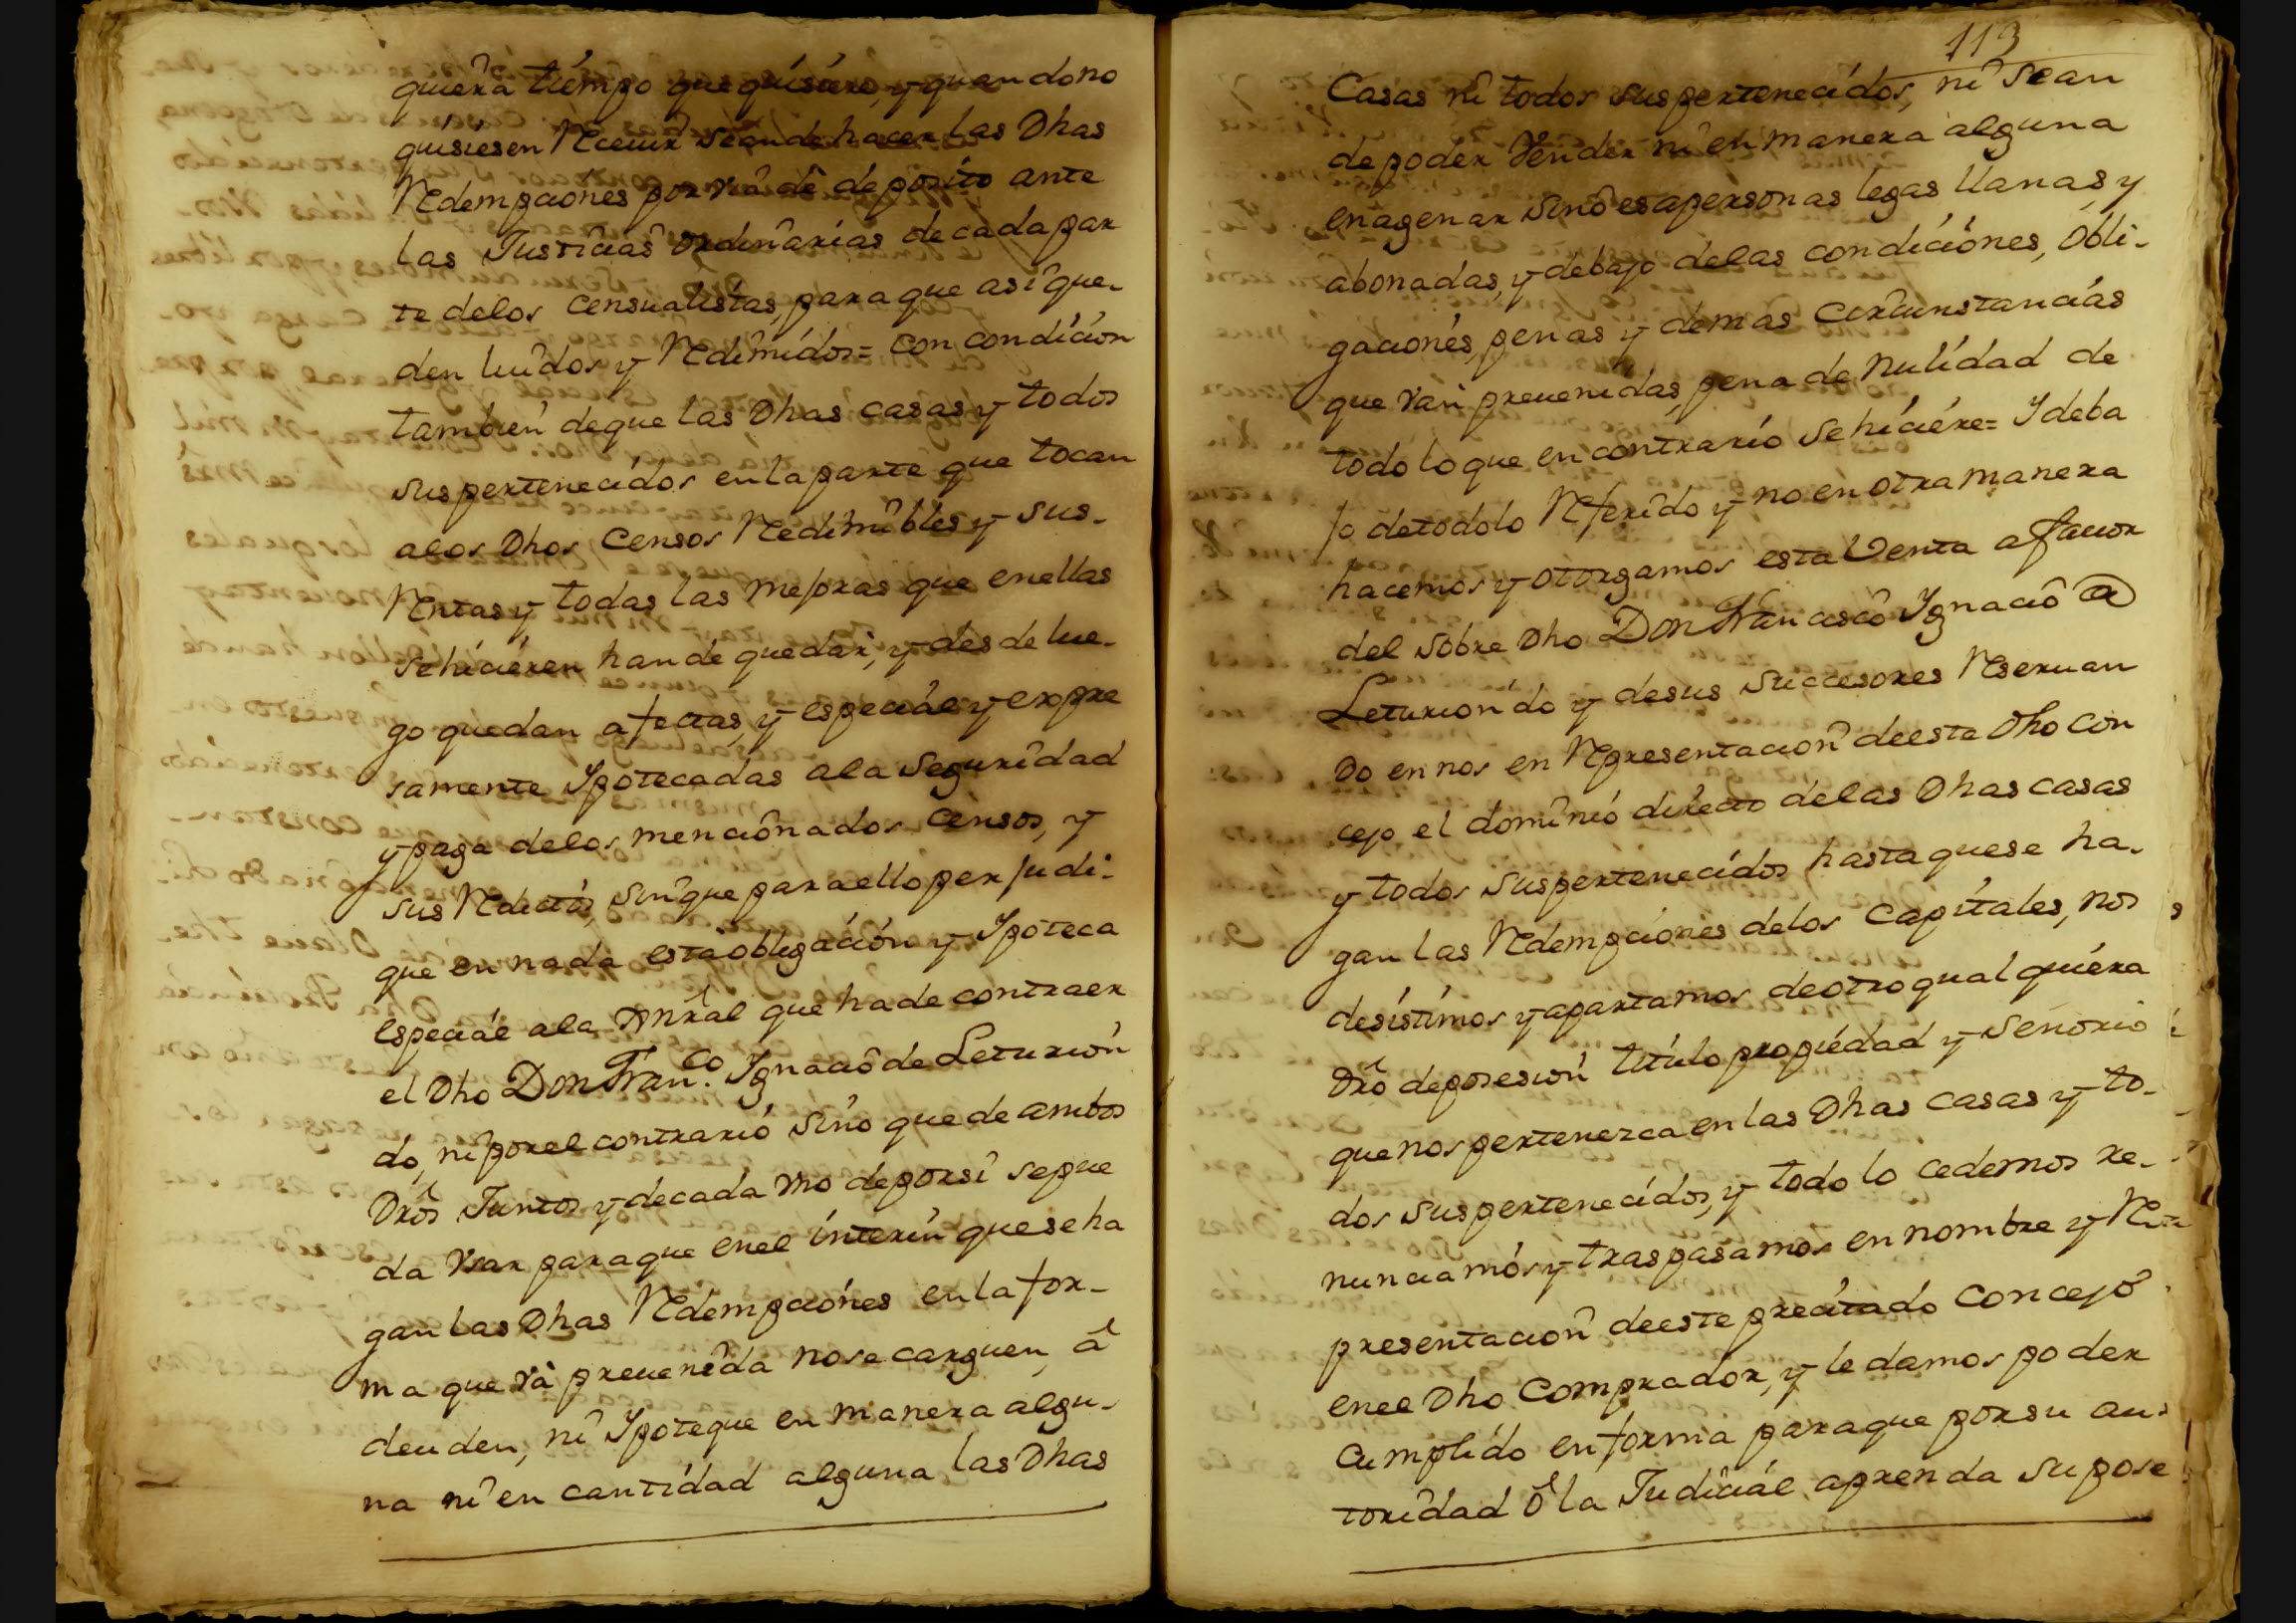 quiera tiempo que quisiere, y quando no
quisiesen Receuir se an de hacer las Dhas
Redempciones por via de deposito ante
las Justicias ordinarias de cada par
te delos censualistas, para que asi que-
den luidos y Redimidos= con condicion
tambien deque las Dhas casas y todos
sus pertenecidos en la parte que tocan
alos Dhos Censos Redimibles y sus-
Rentas y todas las mejoras que enellas
se hicieren han de quedar, y desde lue-
go quedan afectas, y especial y expre
samente Ipotecadas ala seguridad
y paga delos mencionados censos, y
sus Reditos, sin que para ello perjudi-
que en nada esta obligacion y Ipoteca
especial ala Gnral que ha de contraer
el Dho Don Fran.co Ignacio de Leturion
do, ni por el contrario sino que de ambos
Dros Juntos y de cada vno de por si se pue
da vsar para que enel interin que se ha
gan las Dhas Redempciones en la for-
ma que va preuenida no se carguen, â
deuden, ni Ipoteque en manera algu-
na ni en cantidad alguna las Dhas
113
Casas ni todos sus pertenecidos, ni se an
de poder Vender ni en manera alguna
enagenar sino es a personas legas llanas, y
abonadas, y debajo delas condiciones, obli-
gaciones, penas y demas circunstancias
que van preuenidas, pena de nulidad de
todo lo que en contrario se hiciere= I deba
jo de todo lo Referido y no en otra manera
hacemos y otorgamos esta Venta a fauor
del sobre Dho Don Francisco Ignacio @
Leturiondo y de sus Succesores Reseruan
do en nos en Representacion de este Dho Con
cejo el dominio directo delas Dhas casas
y todos sus pertenecidos hasta que se ha-
gan las Redempciones delos Capitales, nos
desistimos y apartamos de otro qual quiera
Dro de posesion titulo propiedad y Senorio
que nos pertenezca en las Dhas casas y to-
dos sus pertenecidos, y todo lo cedemos re-
nunciamos y traspasamos en nombre y Re
presentacion de este precitado Concejo
enel Dho Comprador, y le damos poder
Cumplido en forma para que por su au-
toridad ô la Judicial aprenda su pose